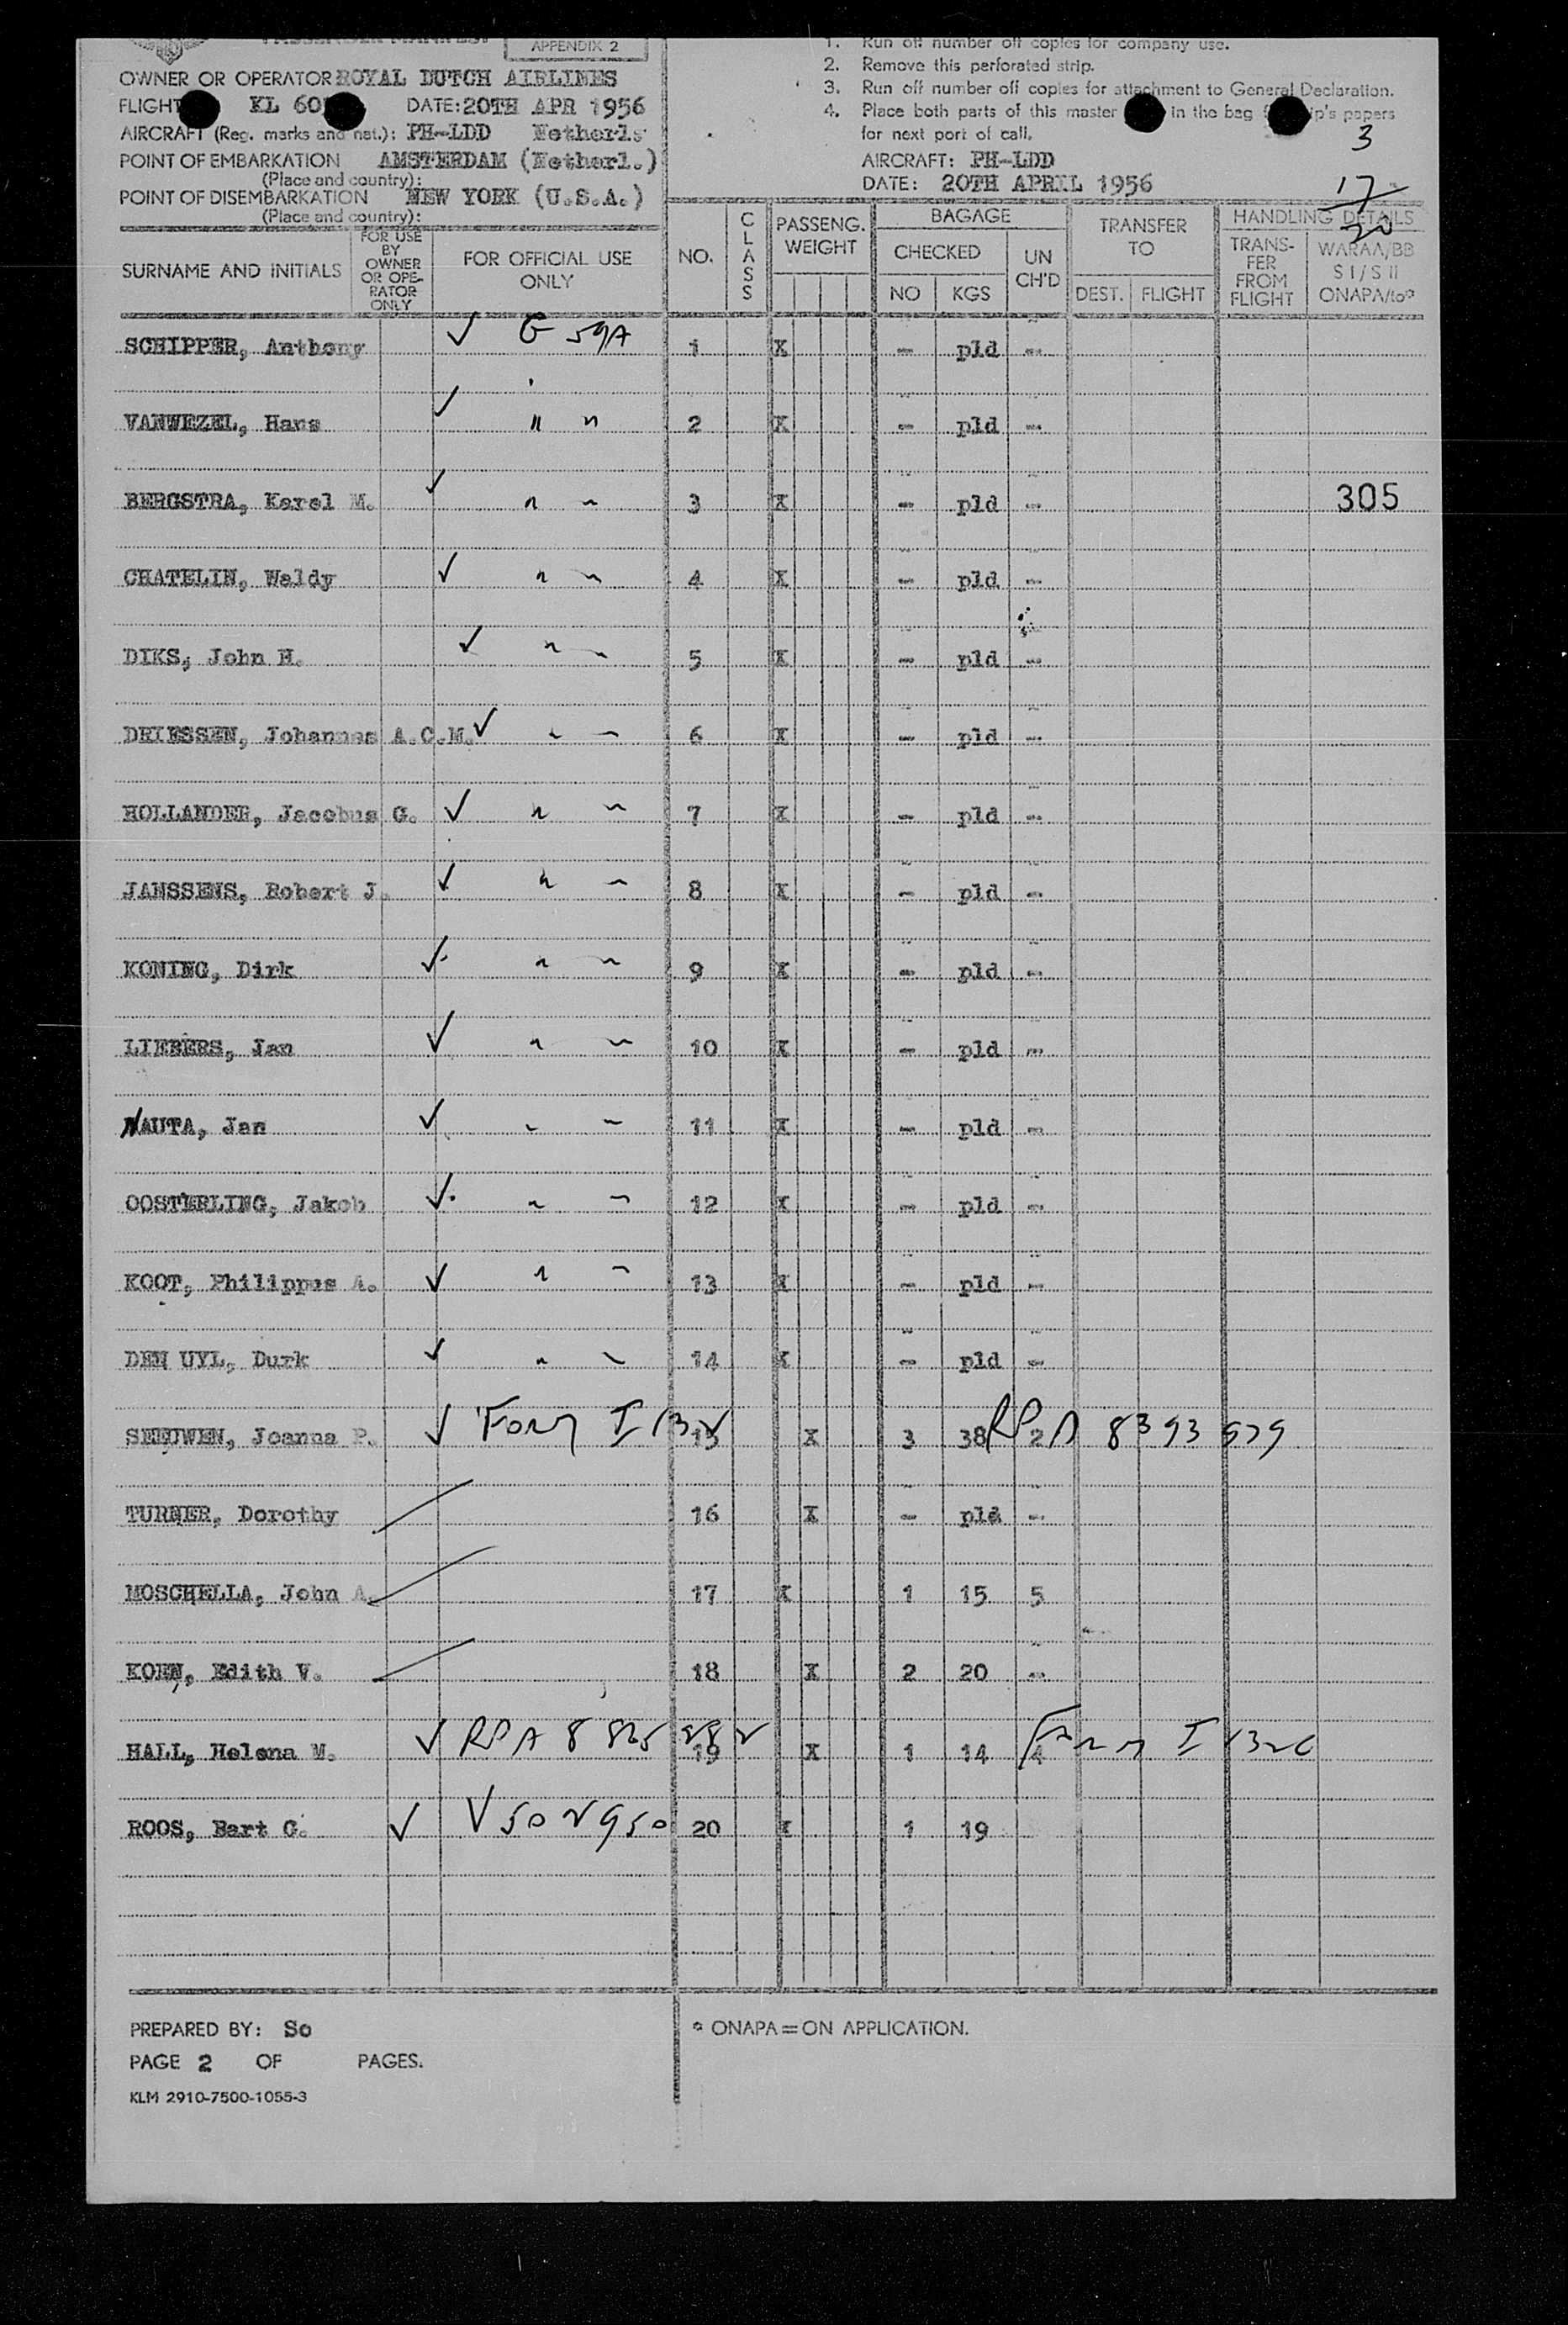 APPENDIX 2
OWNER OR OPERATOR ROYAL DUTCH AIRLINES
FLIGHT KL 60 DATE: 20TH APR 1956
AIRCRAFT (Reg. marks and nat.): PH-LDD Netherl.
POINT OF EMBARKATION AMSTERDAM (Netherl.)
(Place and country):
POINT OF DISEMBARKATION NEW YORK (U.S.A.)
(Place and country):
1. Run off number off copies for company use.
2. Remove this perforated strip.
3. Run off number off copies for attachment to General Declaration.
4. Place both parts of this master in the bag papers
for next port of call.
3
AIRCRAFT: PH-LDD
DATE: 20TH APRIL 1956
17
20
SURNAME AND INITIALS
FOR USE BY OWNER OR OPE-RATOR ONLY
FOR OFFICIAL USE ONLY
NO.
CLASS
PASSENG. WEIGHT
BAGAGE
CHECKED
NO KGS
UN CH'D
TRANSFER TO
DEST. FLIGHT
HANDLING DETAILS
TRANS-FER FROM FLIGHT
WARAA/BB S I / S II ONAPA/to°
SCHIPPER, Anthony ✓ G 59A 1 X - pld -
VANWEZEL, Hans ✓ " " 2 X - pld -
BERGSTRA, Karel M. ✓ " " 3 X - pld - 305
CHATELIN, Waldy ✓ " " 4 X - pld -
DIKS, John H. ✓ " " 5 X - pld -
DRIESSEN, Johannes A.C.M. ✓ " " 6 X - pld -
HOLLANDER, Jacobus G. ✓ " " 7 X - pld -
JANSSENS, Robert J. ✓ " " 8 X - pld -
KONING, Dirk ✓ " " 9 X - pld -
LIEBERS, Jan ✓ " " 10 X - pld -
NAUTA, Jan ✓ " " 11 X - pld -
OOSTERLING, Jakob ✓ " " 12 X - pld -
KOOT, Philippus A. ✓ " " 13 X - pld -
DEN UYL, Durk ✓ " " 14 X - pld -
SEEUWEN, Joanna P. ✓ Form I 132 15 X 3 38 2 RPA 8393529
TURNER, Dorothy 16 X - pld -
MOSCHELLA, John A. 17 X 1 15 5
KOEN, Edith V. 18 X 2 20 -
HALL, Helena M. ✓ RPA 8 825 282 19 X 1 14 4 Form I 132
ROOS, Bart C. ✓ V 502950 20 X 1 19
PREPARED BY: So
° ONAPA=ON APPLICATION.
PAGE 2 OF PAGES.
KLM 2910-7500-1055-3